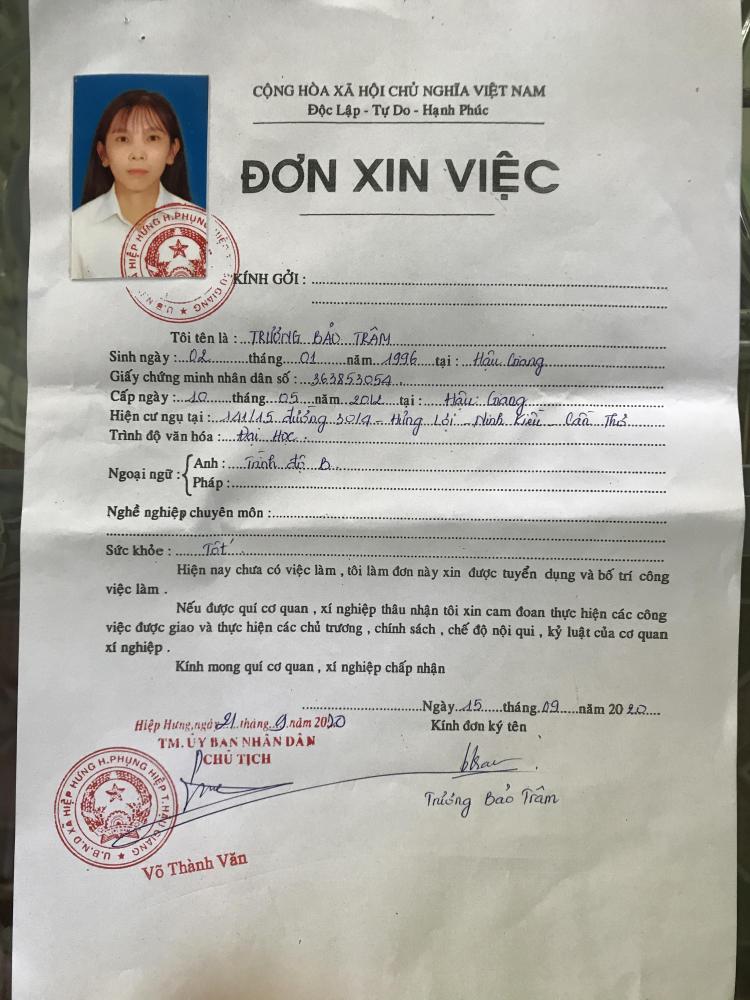 CỘNG HÒA XÃ HỘI CHỦ NGHĨA VIỆT NAM
Độc Lập - Tự Do - Hạnh Phúc
ĐƠN XIN VIỆC
KÍNH GỞI :
Tôi tên là : TRƯƠNG BẢO TRÂM
Sinh ngày : 02 tháng 01 năm 1996 tại : Hậu Giang
Giấy chứng minh nhân dân số : 363853054
Cấp ngày : 10 tháng 05 năm 2012 tại : Hậu Giang
Hiện cư ngụ tại : 141/15 đường 30/4 - Hưng Lợi - Ninh Kiều - Cần Thơ
Trình độ văn hóa : Đại Học
Ngoại ngữ :
Anh : Trình độ B
Pháp :
Nghề nghiệp chuyên môn :
Sức khỏe : Tốt
Hiện nay chưa có việc làm , tôi làm đơn này xin được tuyển dụng và bố trí công
việc làm .
Nếu được quí cơ quan , xí nghiệp thâu nhận tôi xin cam đoan thực hiện các công
việc được giao và thực hiện các chủ trương , chính sách , chế độ nội qui , kỷ luật của cơ quan
xí nghiệp .
Kính mong quí cơ quan , xí nghiệp chấp nhận
Ngày 15 tháng 09 năm 2020
Kính đơn ký tên
Trương Bảo Trâm
Hiệp Hưng, ngày 21 tháng 9 năm 2020
TM. ỦY BAN NHÂN DÂN
CHỦ TỊCH
U.B.N.D XÃ HIỆP HƯNG H.PHỤNG HIỆP T.HẬU GIANG
Võ Thành Văn